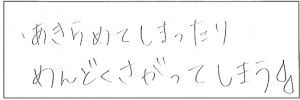 ・あきらめてしまったり
めんどくさがってしまう